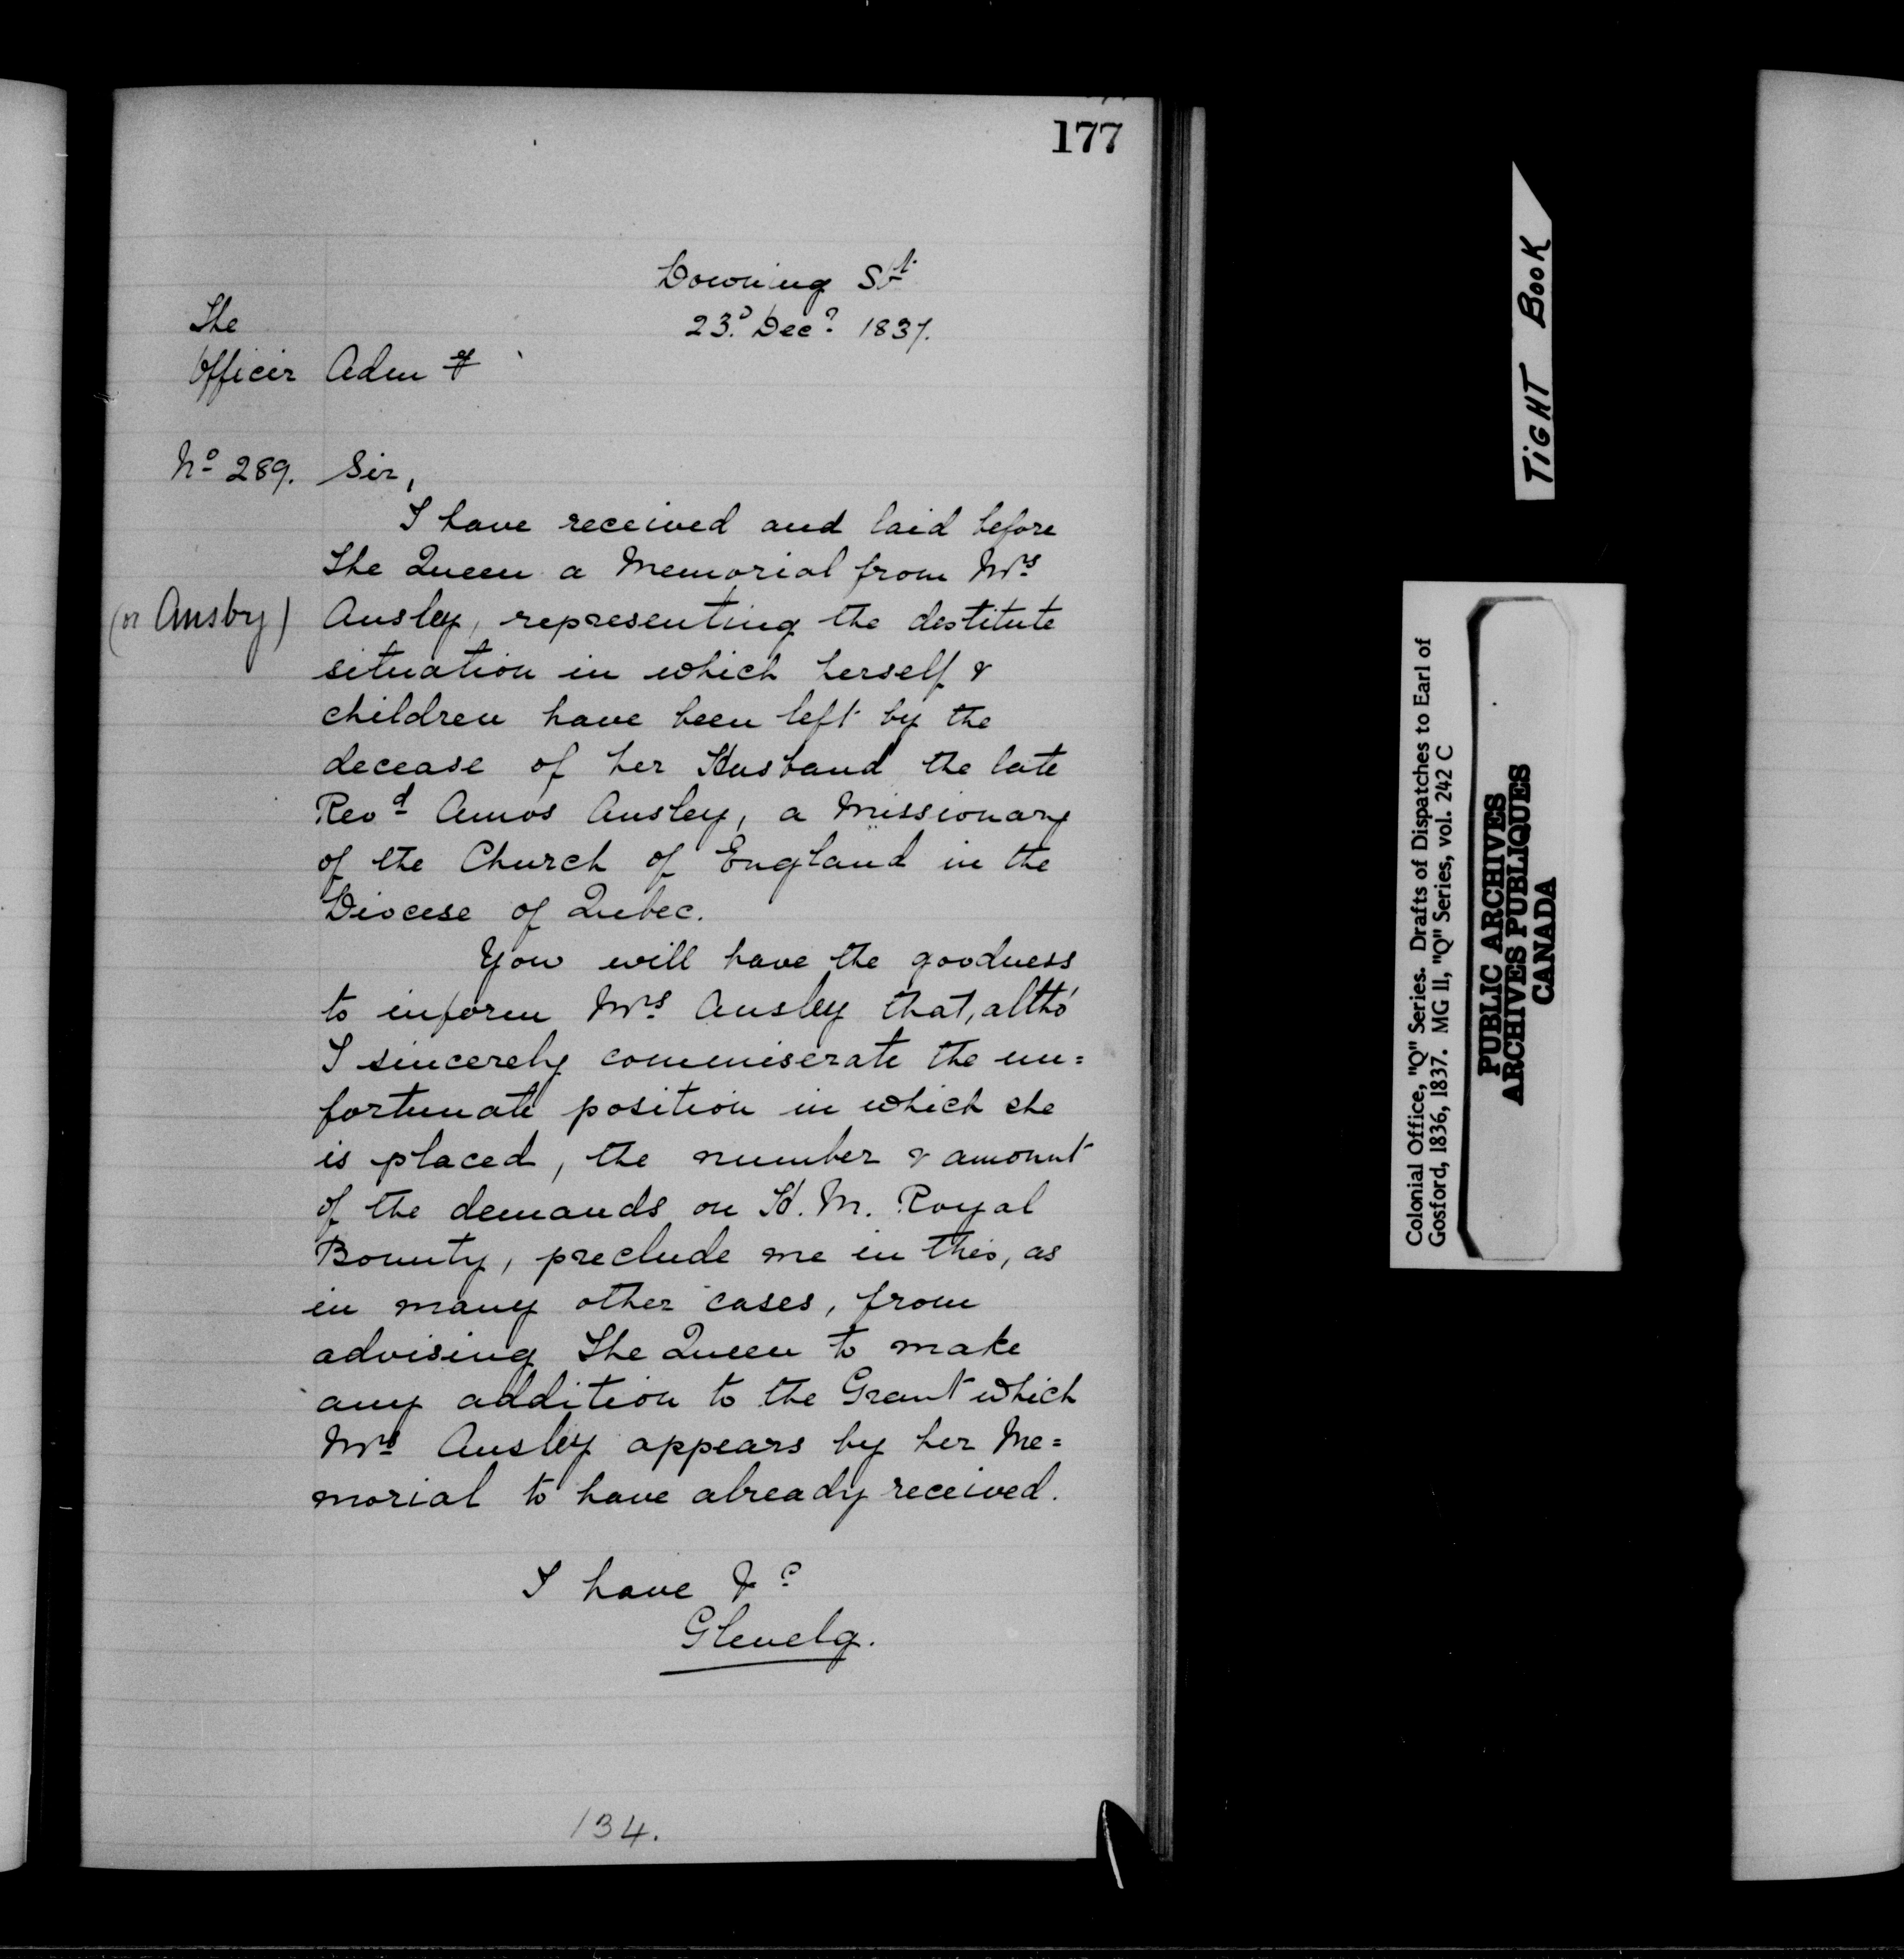 177
Downing St
23d Decr 1837.
The
Officer Adm g
No 289. Sir,
I have received and laid before
The Queen a Memorial from Mrs
(or Ansby) Ansley, representing the destitute
situation in which herself &
children have been left by the
decease of her Husband the late
Revd Amos Ansley, a Missionary
of the Church of England in the
Diocese of Quebec.
You will have the goodness
to inform Mrs Ansley that, altho'
I sincerely commiserate the un=
fortunate position in which she
is placed, the number & amount
of the demands on H. M. Royal
Bounty, preclude me in this, as
in many other cases, from
advising The Queen to make
any addition to the Grant which
Mrs Ansley appears by her Me=
morial to have already received.
I have &c
Glenelg.
134.
TIGHT BOOK
Colonial Office, "Q" Series. Drafts of Dispatches to Earl of
Gosford, 1836, 1837. MG II, "Q" Series, vol. 242 C
PUBLIC ARCHIVES
ARCHIVES PUBLIQUES
CANADA